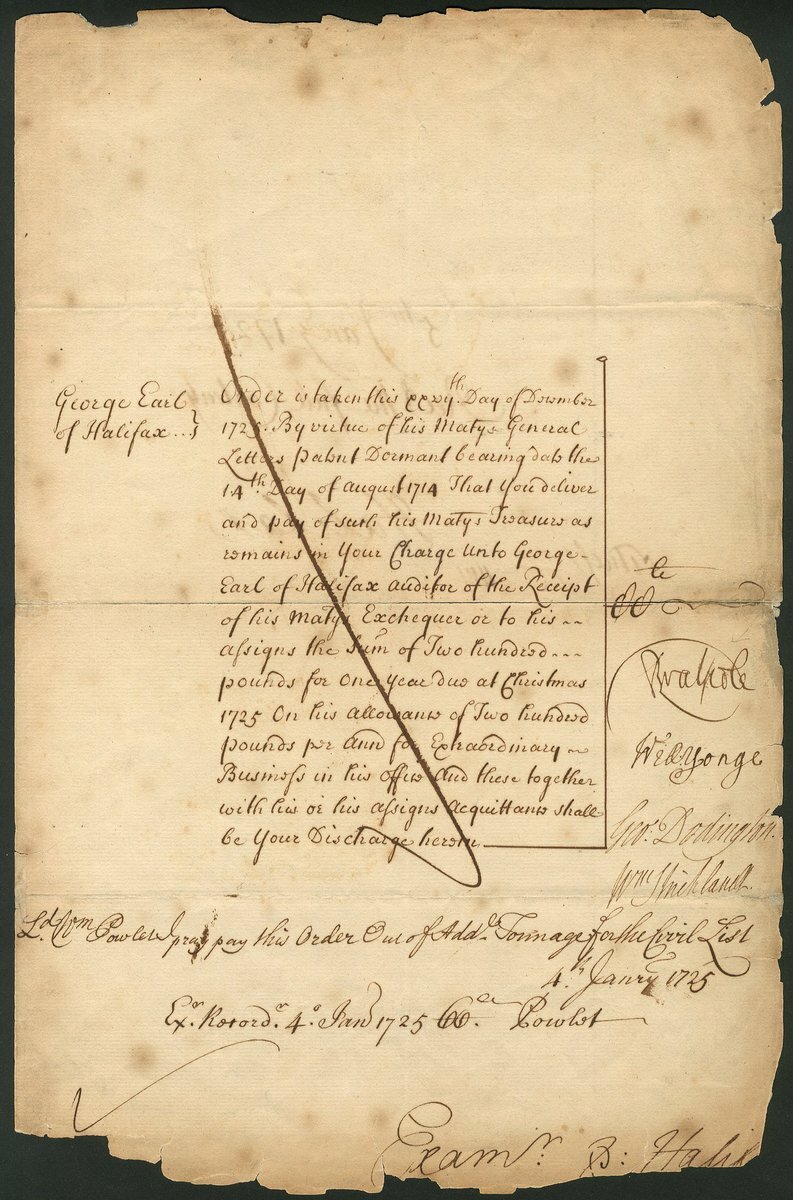 George Earl
of Halifax
Order is taken this xxvijth. Day of December
1725. By virtue of his Matys General
Letters patent Dormant bearing date the
14th Day of August 1714 That You deliver
and pay of such his Matys Treasure as
remains in Your Charge Unto George
Earl of Halifax Auditor of the Receipt
of his Matys Exchequer or to his
assigns the Sum of Two hundred
pounds for One Year due at Christmas
1725 On his Allowance of Two hundred
pounds per Ann for Extraordinary
Business in his office And these together
with his or his assigns Acquittance shall
be Your Discharge herein
RWalpole
Wm Yonge
Geo: Dodington
Wm Strickland
Ld. Wm Powlet pray pay this Order Out of Addl. Tonnage for the Civil List
4th. Janry 1725
Exr. Record r. 4o. Janr 1725 Powlet
Examr. Halif